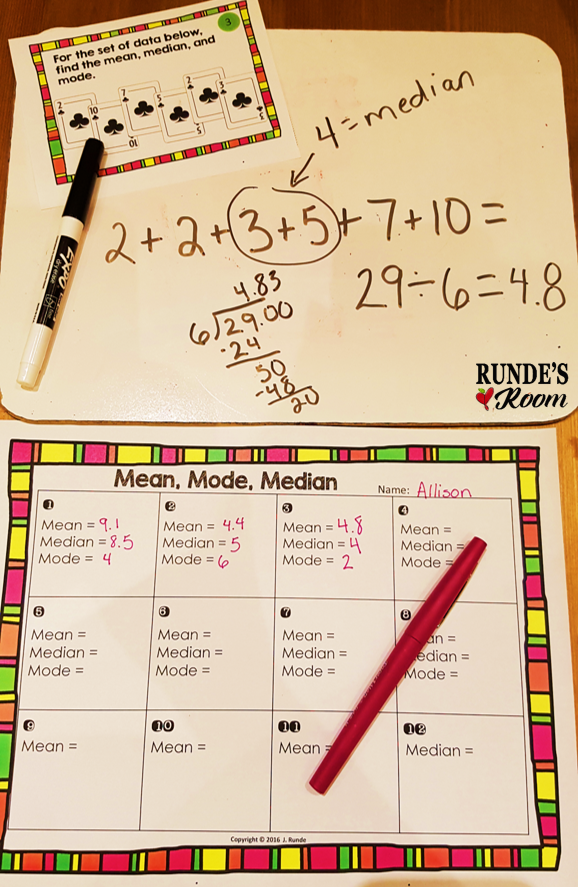 3
For the set of data below,
find the mean, median, and
mode.
2 10 7 5 2 3
10 5 3
4=median
2+2+3+5+7+10=
29÷6=4.8
4.83
6 29.00
-24
50
-48
20
EXPO
RUNDE'S
Room
Mean, Mode, Median
Name: Allison
1 2 3 4
Mean = 9.1 Mean = 4.4 Mean = 4.8 Mean =
Median = 8.5 Median = 5 Median = 4 Median =
Mode = 4 Mode = 6 Mode = 2 Mode =
5 6 7 8
Mean = Mean = Mean = an =
Median = Median = Median = edian =
Mode = Mode = Mode = Mode =
9 10 11 12
Mean = Mean = Mean = Median =
Copyright © 2016 J. Runde